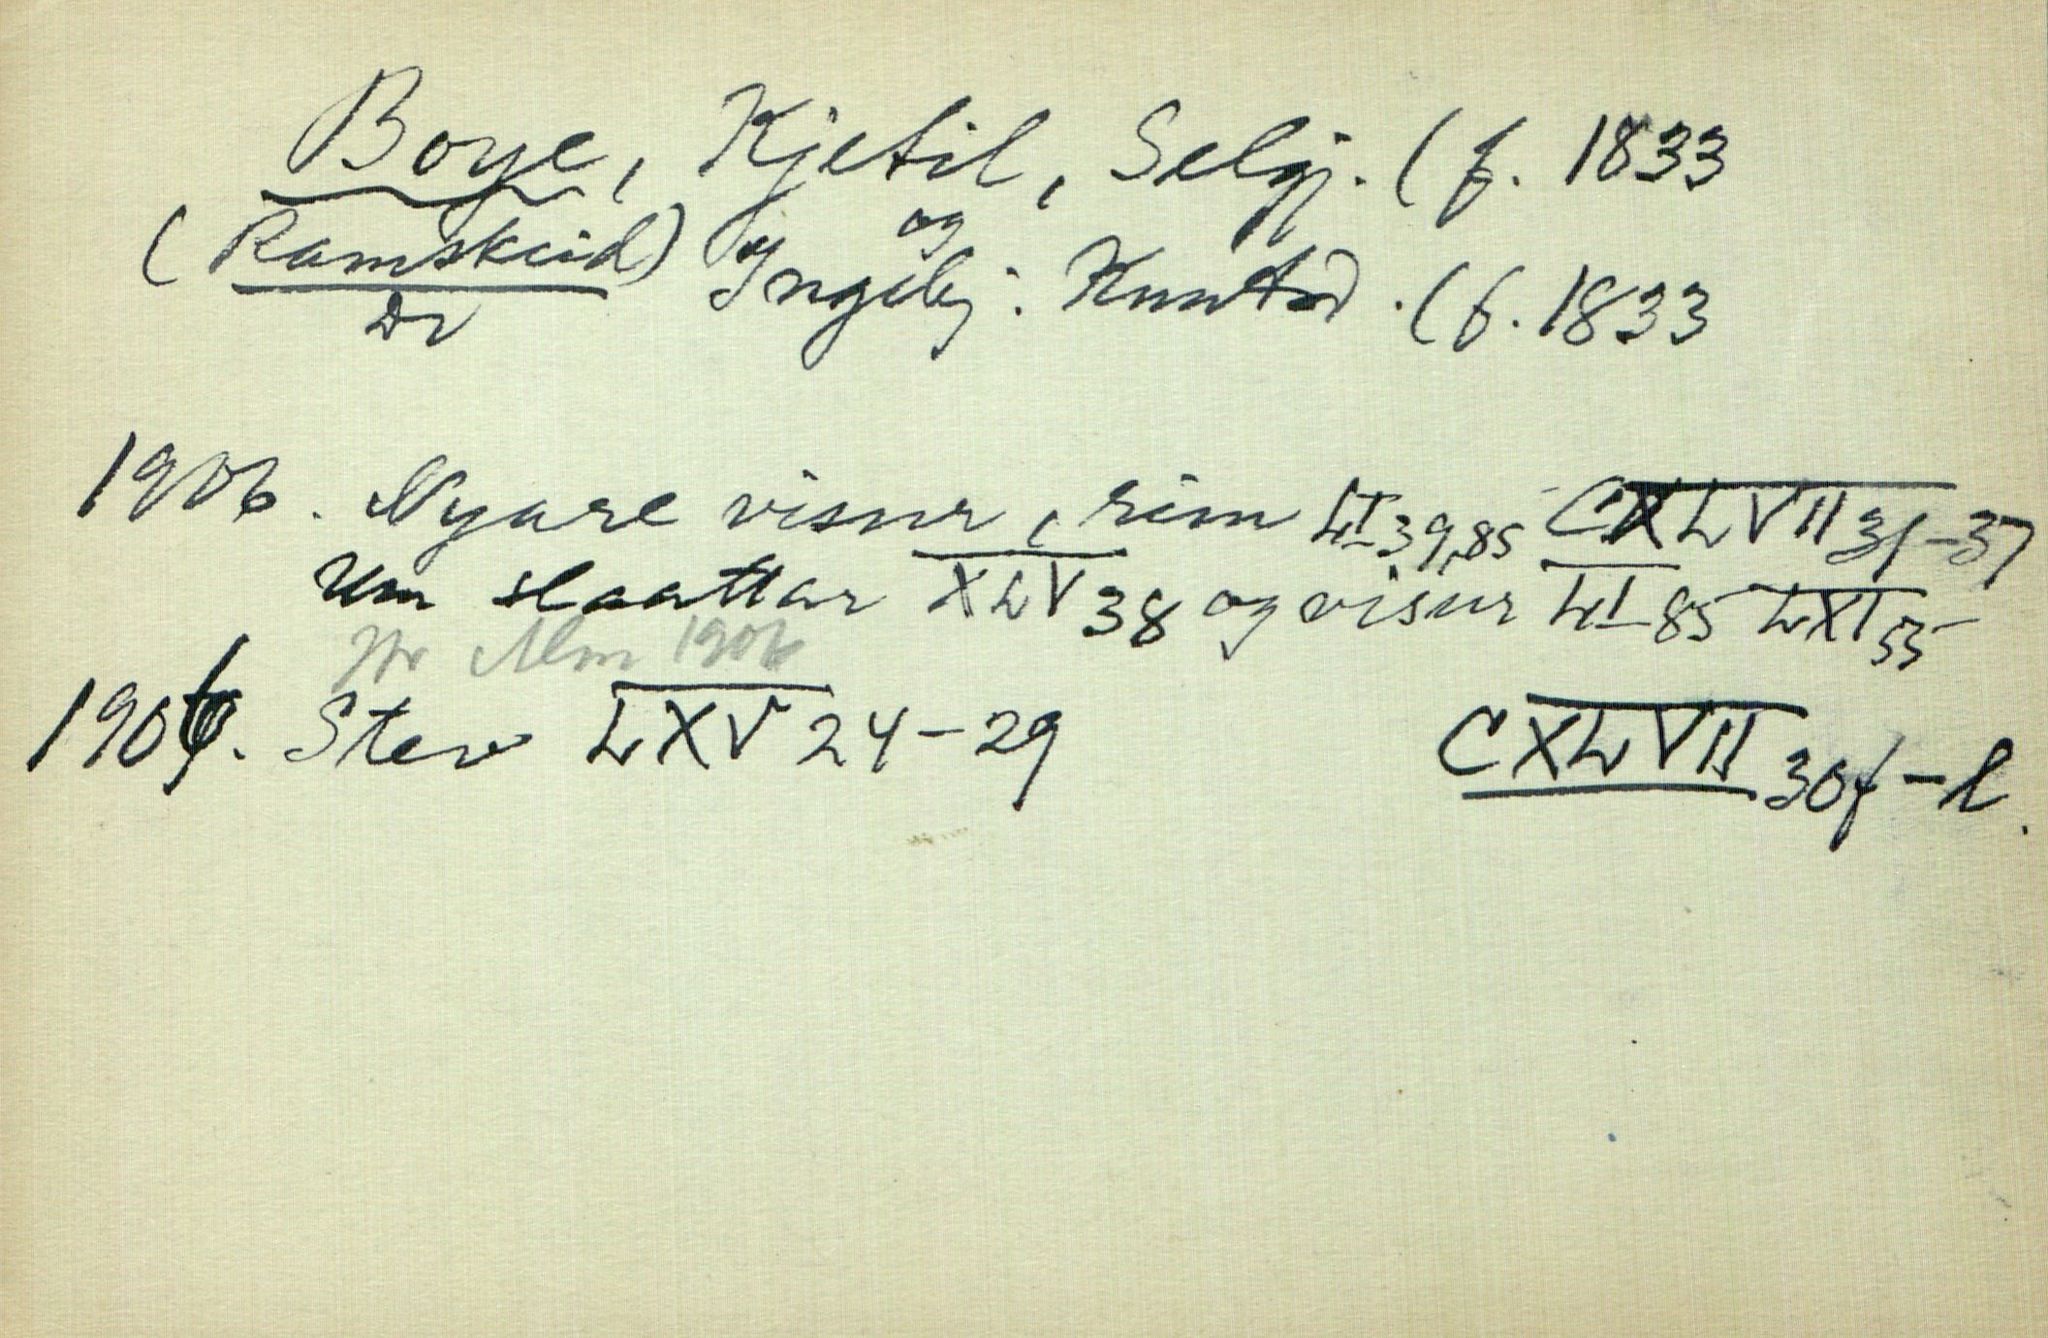 Boye, Kjetil, Selgj. (f. 1833
og
(Ramskeid) Ingebj. Knutsd. (f. 1833
1906. Nyare visur, rim LI 39,85 CXLVII 31-37
Um slaattar XLV 38 og visur LI 85 LXI 55
1906
1906. Stev LXV 24-29 CXLVII 30f-l.